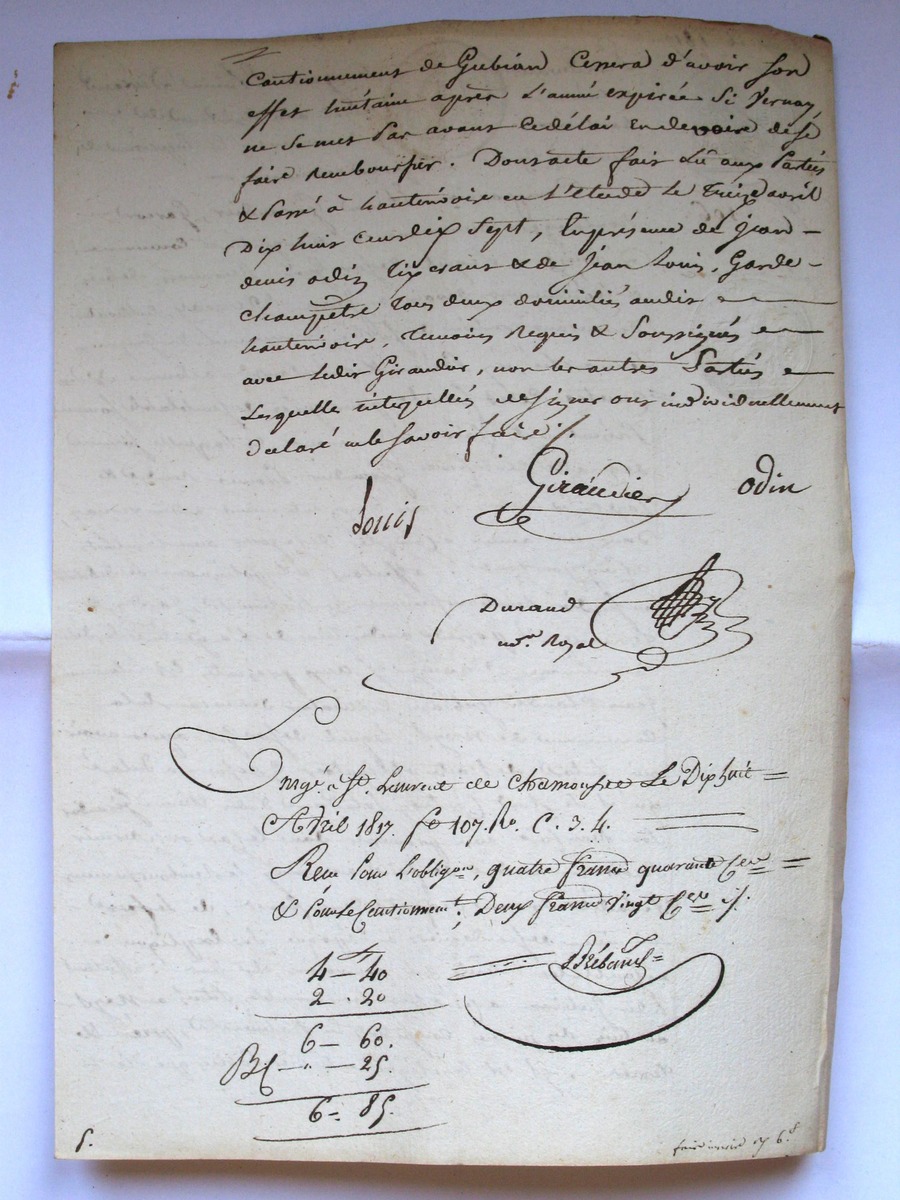 Cautionnement de Gubian Cessera d'avoir son
effet huitaine après L'année expirée Si Vernay
ne Se met Par avant ce délai En devoir de se
faire Rembourser. Dont acte fait Lû aux Parties
& Passé à hauterivoire en L'étude le Treize avril
Dix huit cent dix Sept, En présence de jean
denis odin Tixerant & de jean Louis, Garde-
Champêtre Tous deux domiciliés audit
hauterivoire, Temoins Requis & Soussignés
avec ledit Giraudier, non les autres Parties
Lesquelles interpellées de signer ont individuellement
déclaré ne le Savoir faire ./.
Louis Giraudier odin
Durand
no.re Royal
Enrgé. à St. Laurent de chamousset Le Dix huit
Avril 1817. fo 107. Ro. C. 3. 4.
Reçu Pour L'obligon, quatre francs quarante Ces
& Pour Le Cautionnemt; Deux francs Vingt Ces ./.
4 - 40
2 . 20
6 - 60.
25.
6 = 85.
5.